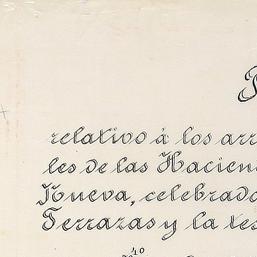 relativo á los arr
les de las Hacien
Nueva, celebrado
Terrazas y la tes
40